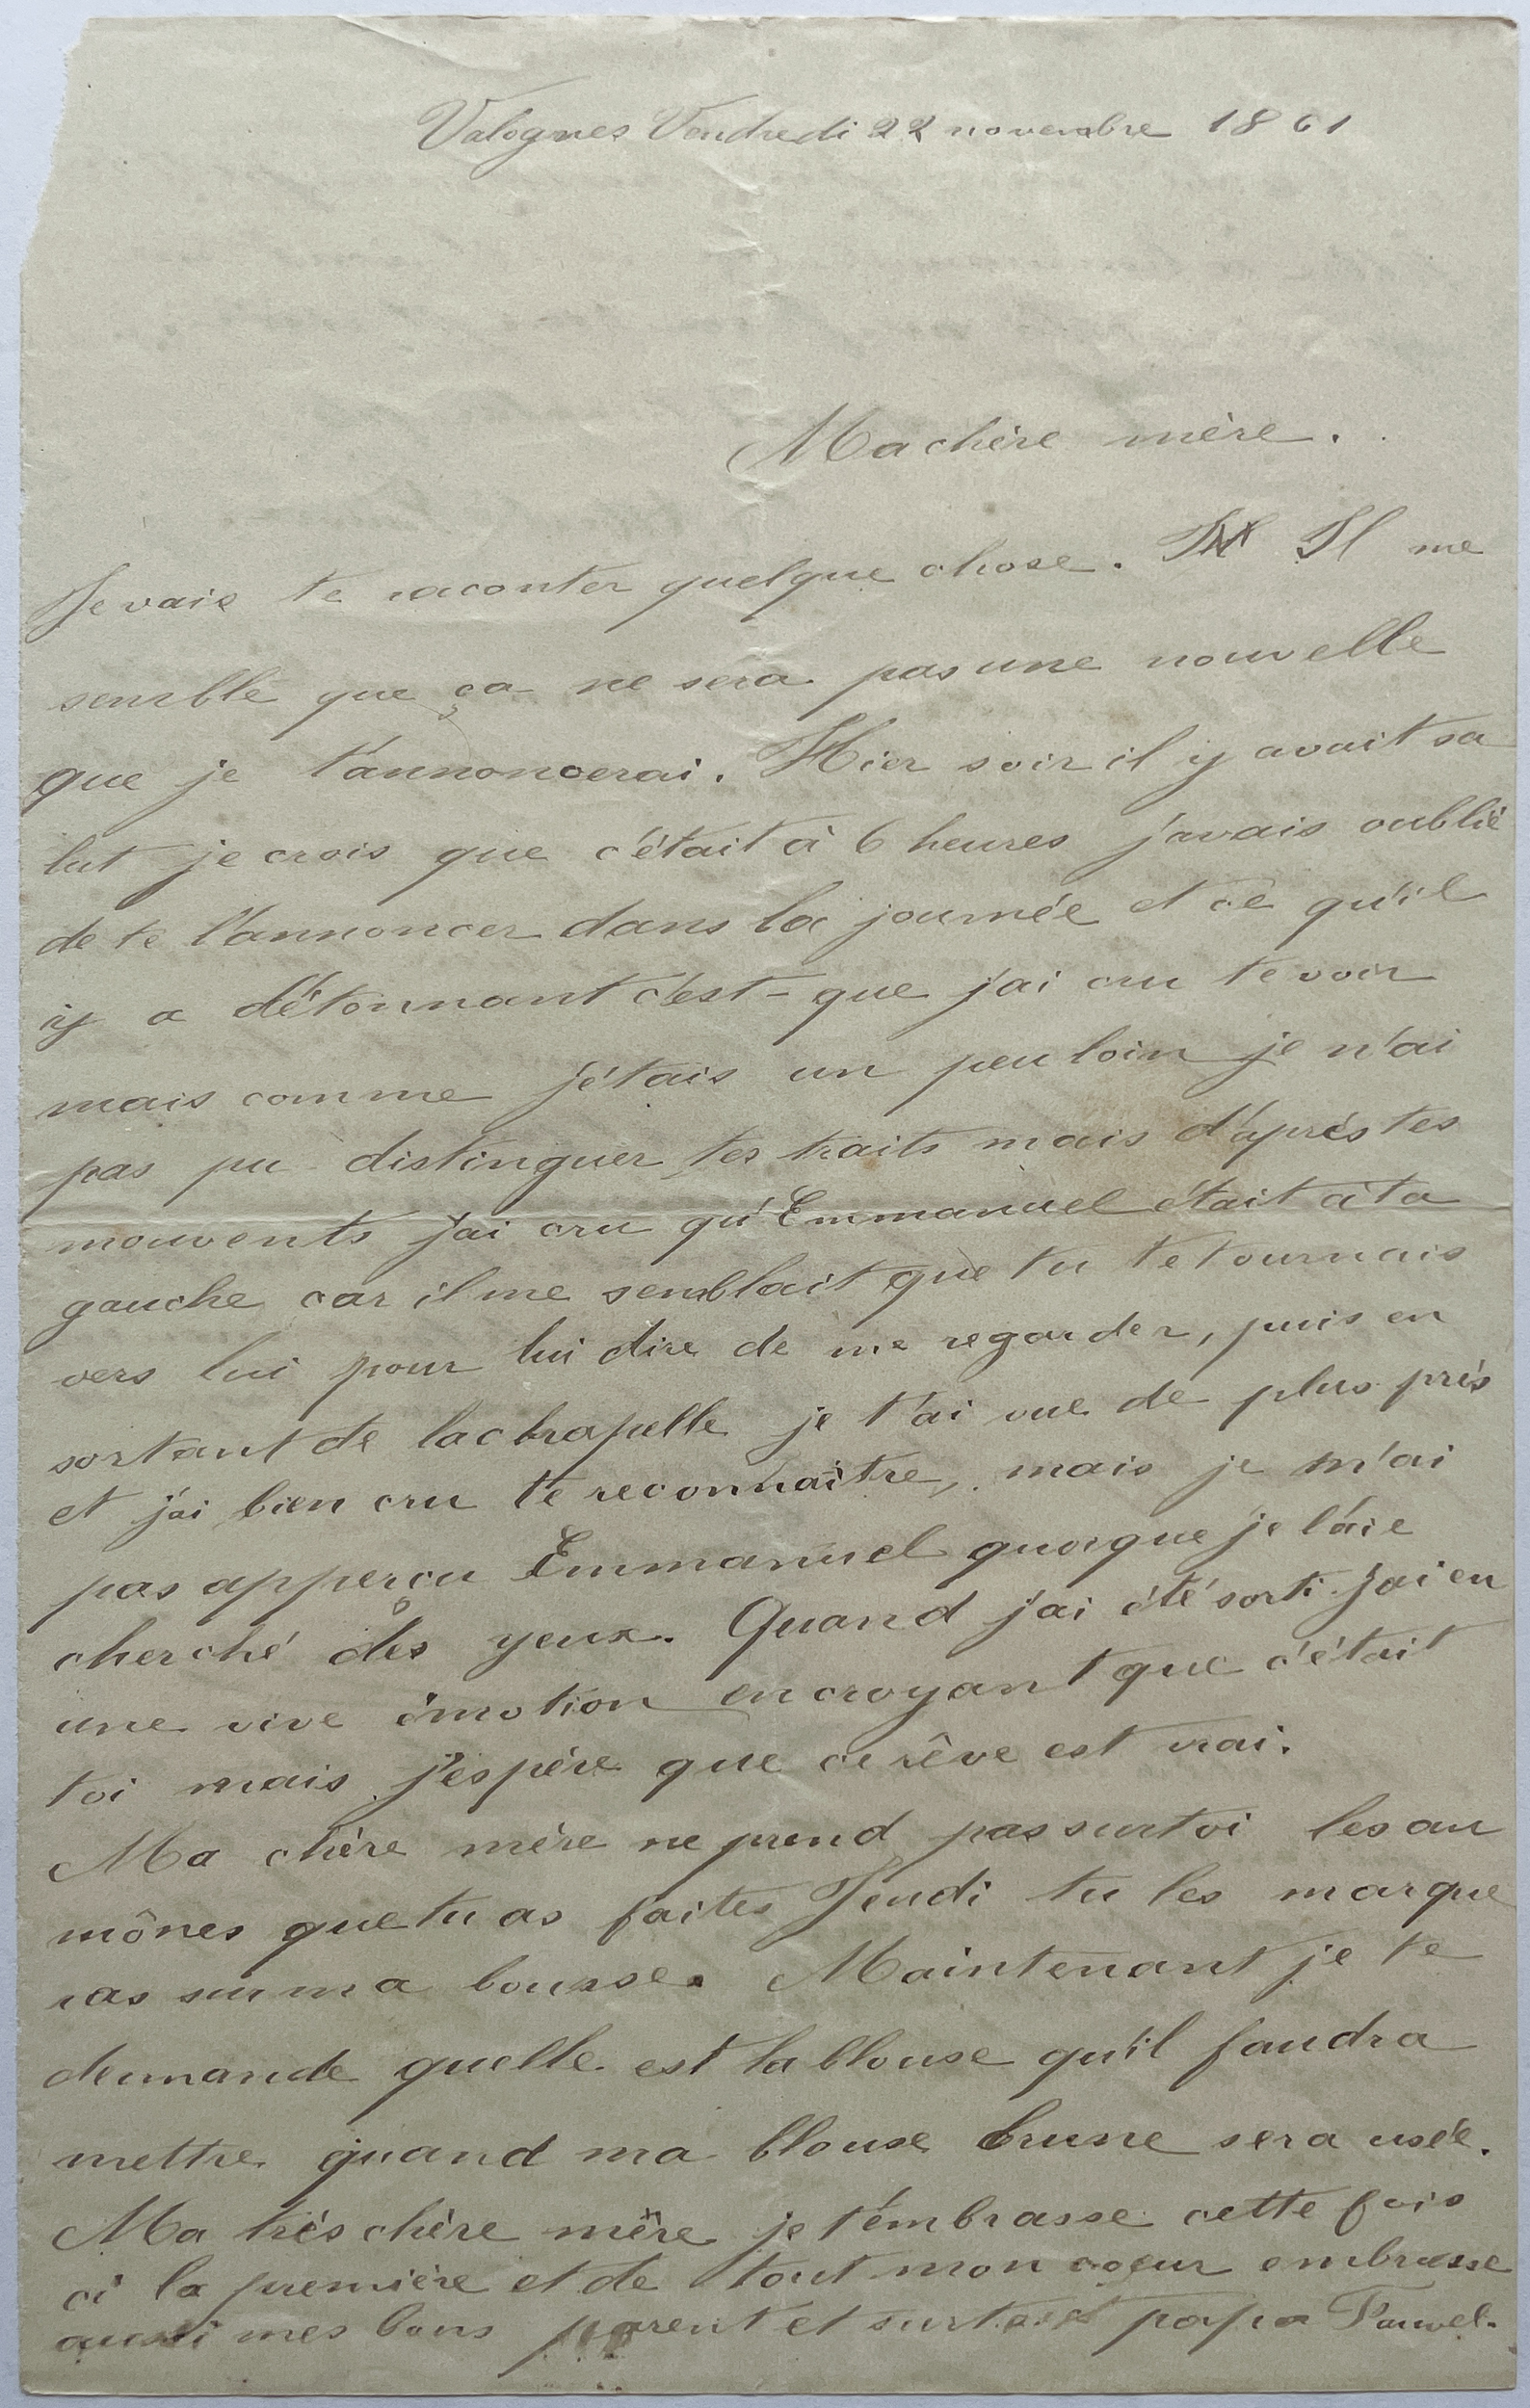 Valognes Vendredi 22 novembre 1861
Ma chère mère.
Je vais te raconter quelque chose. Il me
semble que ça ne sera pas une nouvelle
que je t'annoncerai. Hier soir il y avait sa
lut je crois que c'était à 6 heures j'avais oublié
de te l'annoncer dans la journée et ce qu'il
y a d'étonnant c'est que j'ai cru te voir
mais comme j'étais un peu loin je n'ai
pas pu distinguer tes traits mais d'après tes
mouvents j'ai cru qu'Emmanuel était à ta
gauche car il me semblait que tu te tournais
vers lui pour lui dire de me regarder, puis en
sortant de la chapelle je t'ai vue de plus près
et j'ai bien cru te reconnaître, mais je n'ai
pas apperçu Emmanuel quoique je l'aie
cherché des yeux. Quand j'ai été sorti j'ai eu
une vive émotion en croyant que c'était
toi mais j'espère que ce rêve est vrai.
Ma chère mère ne prend pas sur toi les au
mônes que tu as faites Jeudi tu les marque
ras sur ma bourse. Maintenant je te
demande quelle est la blouse qu'il faudra
mettre quand ma blouse brune sera usée.
Ma très chère mère je t'embrasse cette fois
ci la première et de tout mon coeur embrasse
aussi mes bons parent et surtout papa